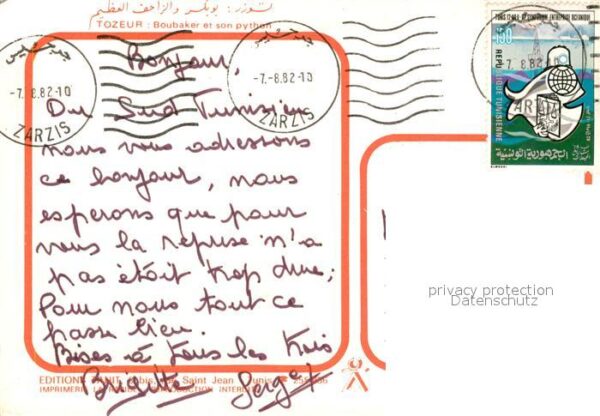 توزر : بوبكر والزاحف العظيم
TOZEUR : Boubaker et son python
Bonjour,
Du Sud Tunisien
nous vous adressons
ce bonjour, nous
esperons que pour
vous la reprise n'a
pas était trop dure;
Pour nous tout ce
passe bien.
Bises à tous les trois
Brigitte Serge
-7.-8.82-10
ZARZIS
-7.-8.82-10
ZARZIS
-7.-8.82-10
ZARZIS
REPUBLIQUE TUNISIENNE
الجمهورية التونسية
privacy protection
Datenschutz
EDITIONS Saint Jean Tunis
IMPRIMERIE REPRODUCTION INTERDITE